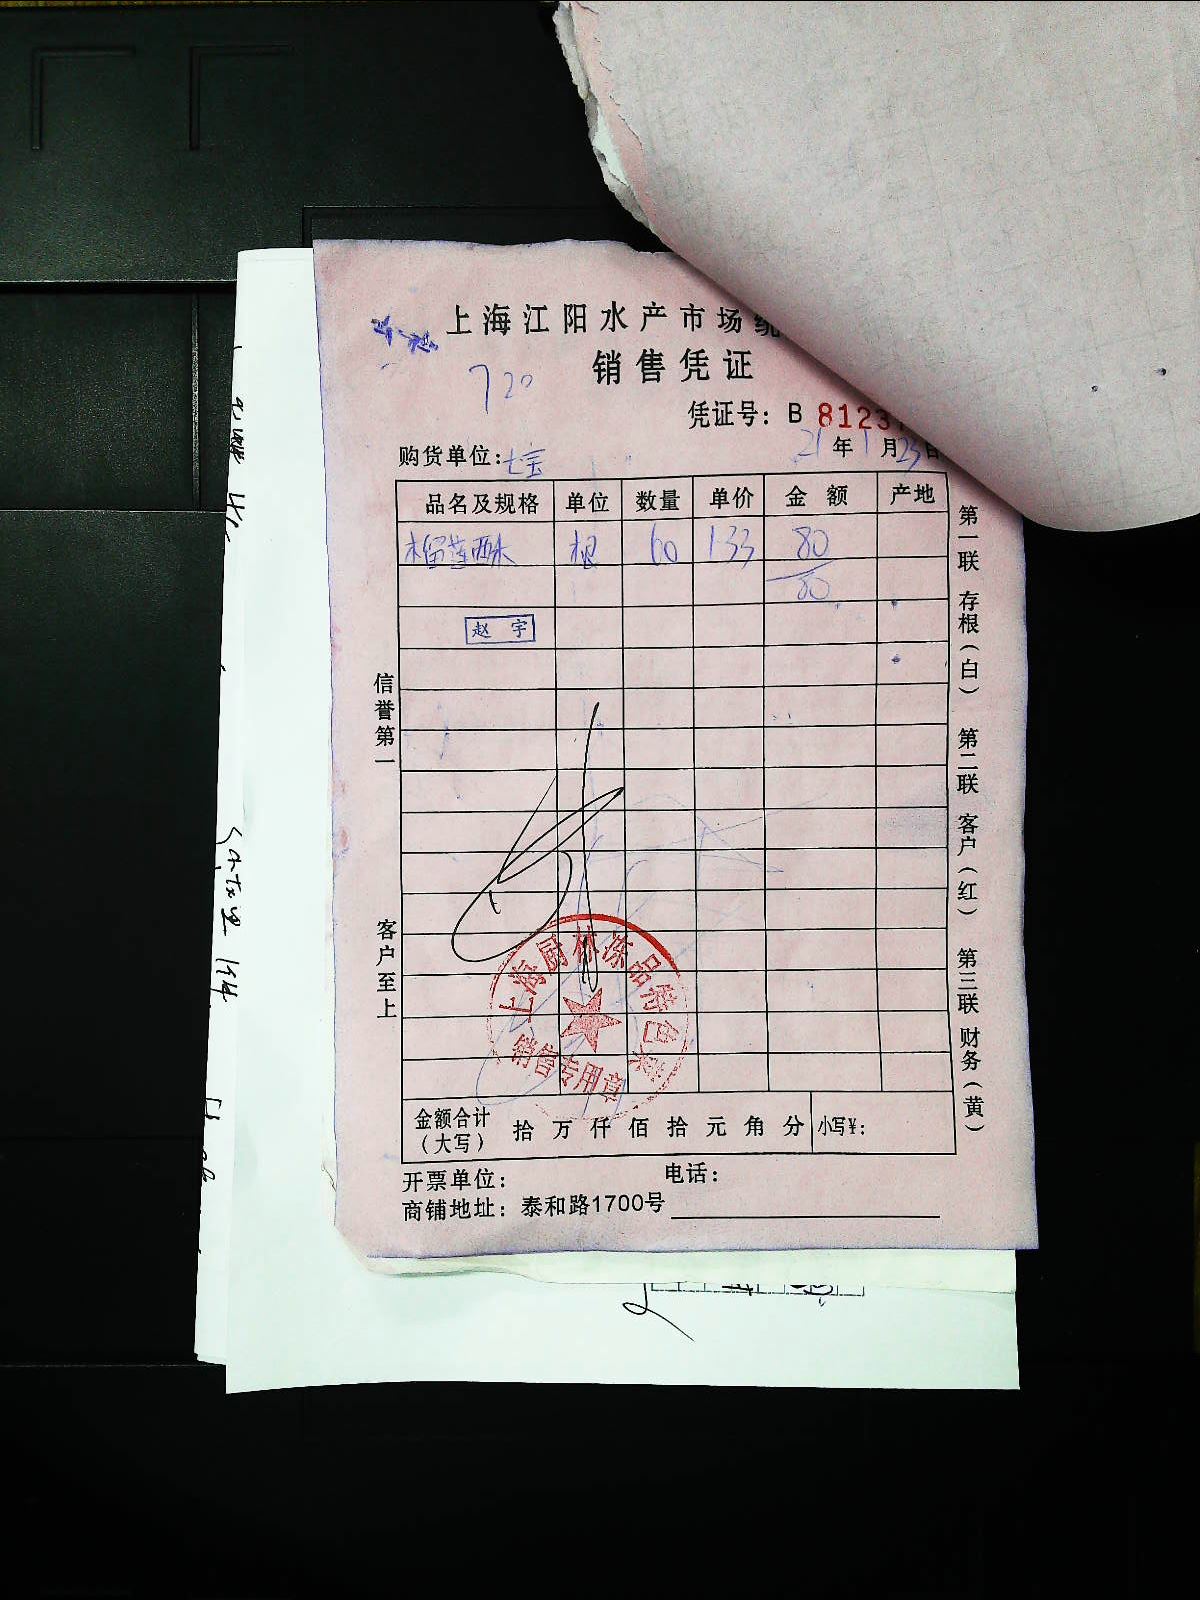 上海江阳水产市场统
销售凭证
720
凭证号：B 8123
21年1月23日
购货单位：七宝
品名及规格 单位 数量 单价 金额 产地
榴莲酥 根 60 1.33 80
80
赵宇
信誉第一
客户至上
第一联 存根（白） 第二联 客户（红） 第三联 财务（黄）
上海厨林冻品特色菜
销售专用章
金额合计（大写） 拾 万 仟 佰 拾 元 角 分 小写¥：
开票单位： 电话：
商铺地址：泰和路1700号